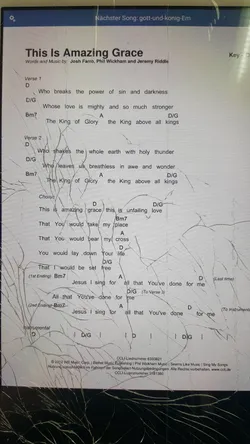 Nächster Song: gott-und-konig-Em
This Is Amazing Grace
Words and Music by: Josh Farro, Phil Wickham and Jeremy Riddle
Key
Verse 1
D
Who breaks the power of sin and darkness
D/G
Whose love is mighty and so much stronger
Bm7 A D/G
The King of Glory the King above all kings
Verse 2
D
Who shakes the whole earth with holy thunder
D/G
Who leaves us breathless in awe and wonder
Bm7 A D/G
The King of Glory the King above all kings
Chorus
D D/G
This is amazing grace this is unfailing love
Bm7
That You would take my place
A
That You would bear my cross
D
You would lay down Your life
D/G
That I would be set free
(1st Ending) Bm7 A D (Last time)
Jesus I sing for all that You've done for me
D/G (To Verse 3)
All that You've done for me
(2nd Ending) Bm7 A D (To Instrumental)
Jesus I sing for all that You've done for me
Instrumental
D | D/G | | D | | D/G |